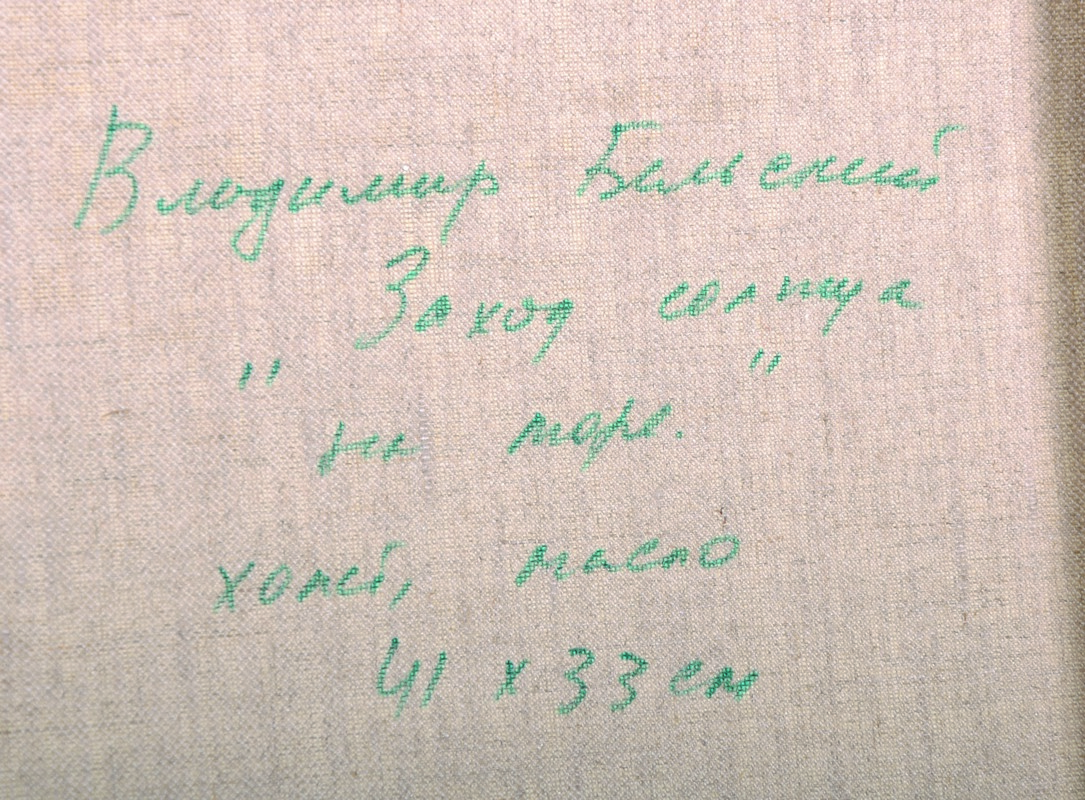 Владимир Бельский
Заход солнца
" "
на море.
холст, масло
41 х 33 см